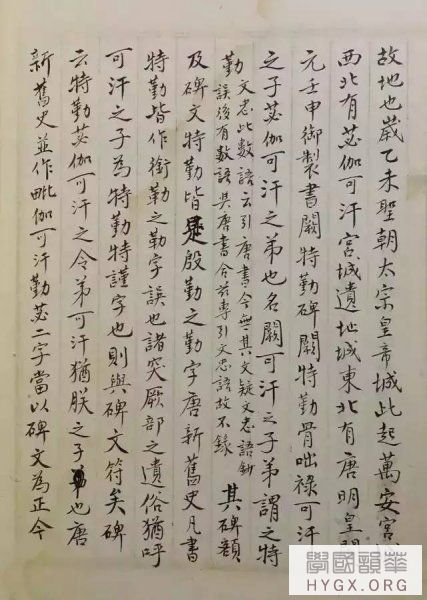 故地也歲乙未聖朝太宗皇帝城此起萬安宮
西北有苾伽可汗宮城遺址城東北有唐明皇開
元壬申御製書闕特勤碑闕特勤骨咄祿可汗
之子苾伽可汗之弟也名闕可汗之子弟謂之特
勤
文忠此數語云引唐書今無其文疑文忠語鈔
誤後有數語與唐書合茲專引文忠語故不錄
其碑額
及碑文特勤皆是殷勤之勤字唐新舊史凡書
特勤皆作銜勒之勒字誤也諸突厥部之遺俗猶呼
可汗之子為特勤特謹字也則與碑文符矣碑
云特勤苾伽可汗之令弟可汗猶朕之子也唐
新舊史並作毗伽可汗勤苾二字當以碑文為正今
學國韻華
HYGX.ORG